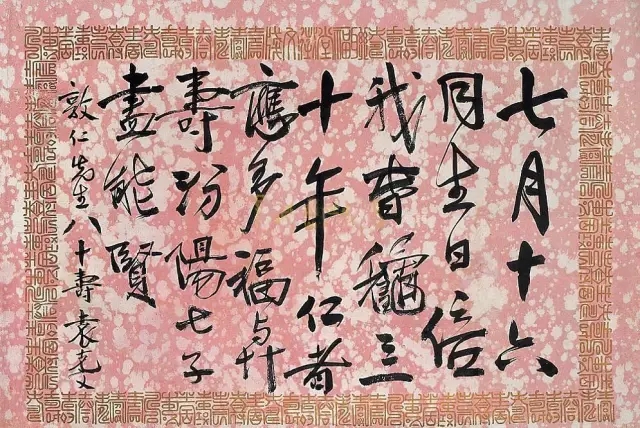 七月十六
同生日倍
我春穐三
十年仁者
應多福與
壽汾陽七子
盡能賢
敦仁先生八十壽 袁克文